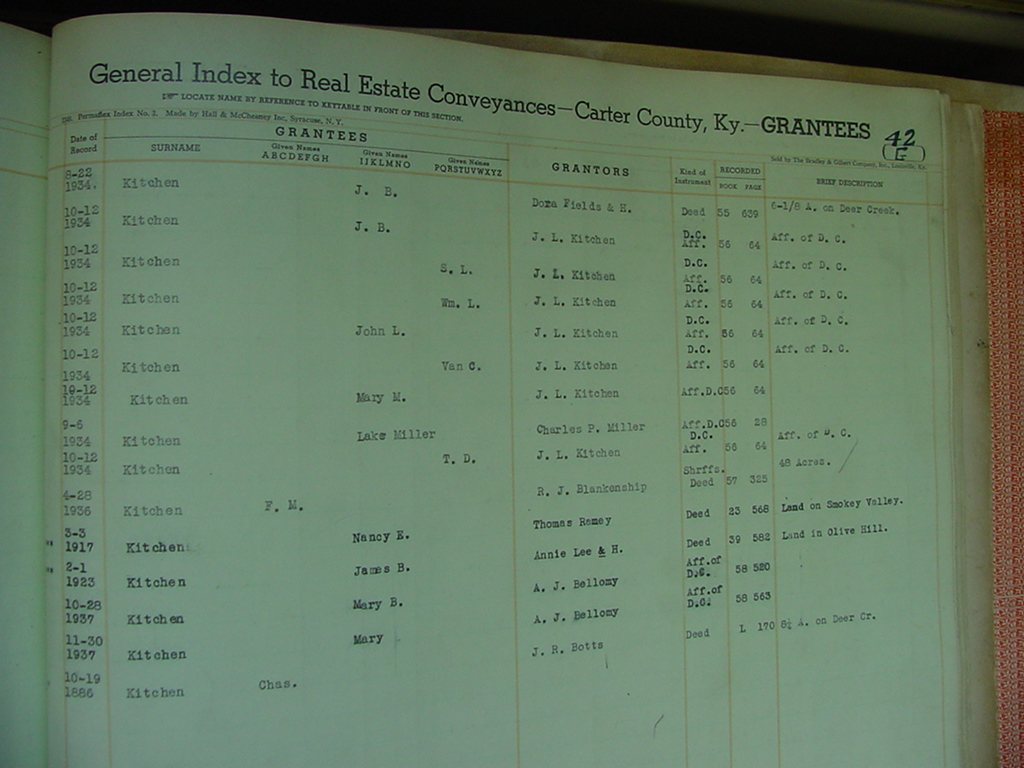 General Index to Real Estate Conveyances—Carter County, Ky.—GRANTEES 42
(G)
LOCATE NAME BY REFERENCE TO KEYTABLE IN FRONT OF THIS SECTION.
Permaflex Index No. 2. Made by Hall & McChesney Inc, Syracuse, N. Y.
Sold by The Bradley & Gilbert Company, Inc., Louisville, Ky.
Date of Record SURNAME GRANTEES Given Names ABCDEFGH Given Names IJKLMNO Given Names PQRSTUVWXYZ GRANTORS Kind of Instrument RECORDED BOOK PAGE BRIEF DESCRIPTION
8-22 1934. Kitchen J. B. Dora Fields & H. Deed 55 639 6-1/8 A. on Deer Creek.
10-12 1934 Kitchen J. B. J. L. Kitchen D.C. Aff. 56 64 Aff. of D. C.
10-12 1934 Kitchen S. L. J. L. Kitchen D.C. Aff. 56 64 Aff. of D. C.
10-12 1934 Kitchen Wm. L. J. L. Kitchen D.C. Aff. 56 64 Aff. of D. C.
10-12 1934 Kitchen John L. J. L. Kitchen D.C. Aff. 56 64 Aff. of D. C.
10-12 1934 Kitchen Van C. J. L. Kitchen D.C. Aff. 56 64 Aff. of D. C.
10-12 1934 Kitchen Mary M. J. L. Kitchen Aff.D.C 56 64
9-6 1934 Kitchen Lake Miller Charles P. Miller Aff.D.C 56 28
10-12 1934 Kitchen T. D. J. L. Kitchen D.C. Aff. 56 64 Aff. of D. C.
4-28 1936 Kitchen F. M. R. J. Blankenship Shrffs. Deed 57 325 48 Acres.
3-3 1917 Kitchen Nancy E. Thomas Ramey Deed 23 568 Land on Smokey Valley.
2-1 1923 Kitchen James B. Annie Lee & H. Deed 39 582 Land in Olive Hill.
10-28 1937 Kitchen Mary B. A. J. Bellomy Aff.of D.C. 58 520
11-30 1937 Kitchen Mary A. J. Bellomy Aff.of D.C. 58 563
10-19 1886 Kitchen Chas. J. R. Botts Deed L 170 8¼ A. on Deer Cr.